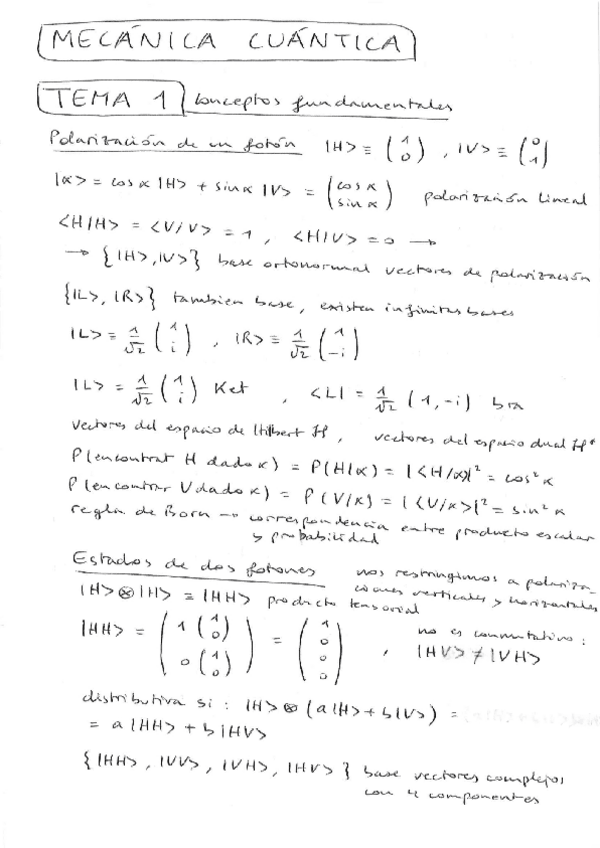 MECÁNICA CUÁNTICA
TEMA 1 Conceptos fundamentales
Polarización de un fotón |H> ≡ (1 0) , |V> ≡ (0 1)
|α> = cos α |H> + sin α |V> = (cos α sin α) polarización lineal
<H|H> = <V|V> = 1 , <H|V> = 0 →
→ {|H>, |V>} base ortonormal vectores de polarización
{|L>, |R>} tambien base, existen infinitas bases
|L> ≡ 1/√2 (1 i) , |R> ≡ 1/√2 (1 -i)
|L> = 1/√2 (1 i) Ket , <L| = 1/√2 (1, -i) bra
vectores del espacio de Hilbert H , vectores del espacio dual H*
P(encontrar H dado α) = P(H|α) = |<H|α>|² = cos² α
P(encontrar V dado α) = P(V|α) = |<V|α>|² = sin² α
regla de Born → correspondencia entre producto escalar
y probabilidad
Estados de dos fotones nos restringimos a polariza-
ciones verticales y horizontales
|H> ⊗ |H> = |HH> producto tensorial
|HH> = (1 (1 0) 0 (1 0)) = (1 0 0 0) , no es conmutativo:
|HV> ≠ |VH>
distributiva si : |H> ⊗ (a|H> + b|V>) =
= a|HH> + b|HV>
{|HH>, |VV>, |VH>, |HV>} base vectores complejos
con 4 componentes